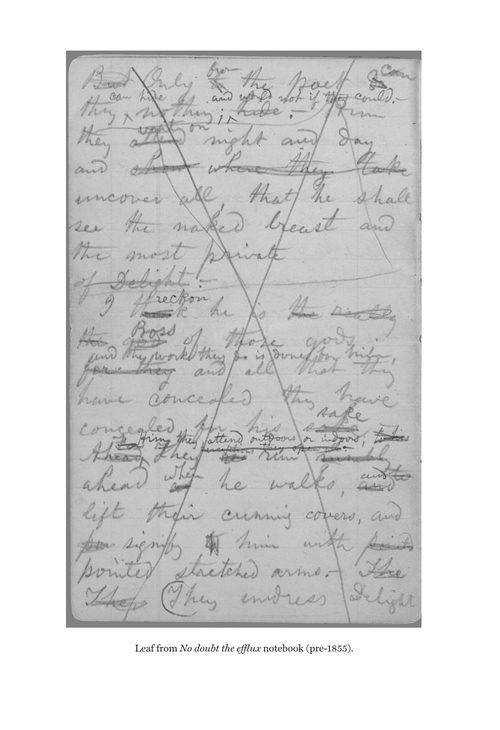 But Only from the poet can
they can hide nothing; and would not if they could.
Him
they attend night and day
and show where they take
uncover all, that he shall
see the naked breast and
the most private
of Delight.—
I think reckon he is the really
the god Boss of those gods;
and the work they do is done for him,
for they and all that they
have concealed they have
concealed for his sake
Him they attend outdoors or indoors,
Ahead They run
ahead when he walks, and
lift their cunning covers, and
signify him with
pointed stretched arms.— The
They They undress Delight
Leaf from No doubt the efflux notebook (pre-1855).